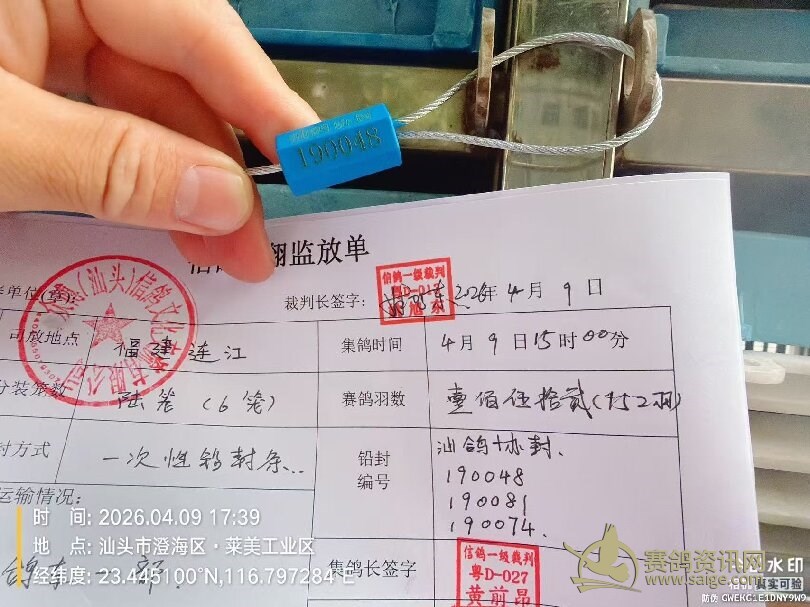 190048
翔监放单
裁判长签字: 2026年4月9日
信鸽一级裁判
司放地点 福建连江 集鸽时间 4月9日15时00分
分装笼数 陆笼 (6笼) 赛鸽羽数 壹佰伍拾贰(152羽)
封方式 一次性铅封条.. 铅封编号 汕鸽协封.
190048
190081
190074.
运输情况:
集鸽长签字
信鸽一级裁判
粤D-027
黄前昂
时 间: 2026.04.09 17:39
地 点: 汕头市澄海区·莱美工业区
经纬度: 23.445100°N,116.797284°E
赛鸽资讯网
www.saige.com
水印
真实可验
防伪 GWEKC1E1DNY9W9